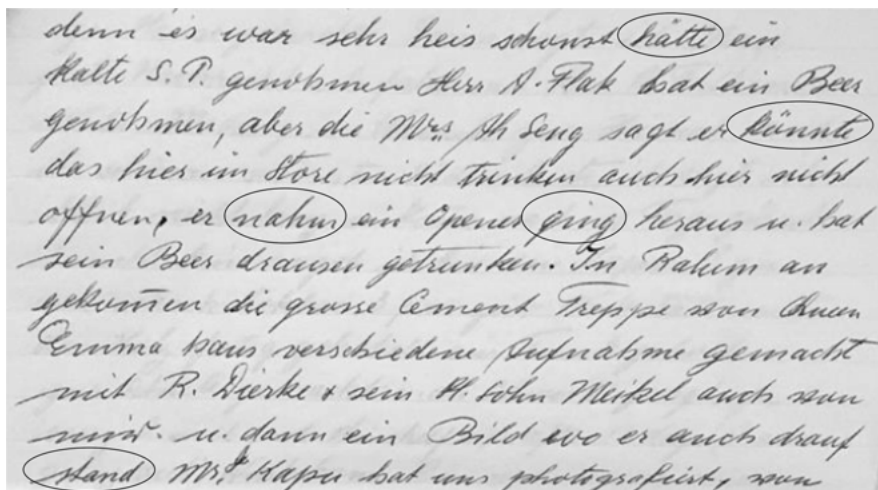 denn es war sehr heis schonst hätte ein
Kalte S. P. genohmen Herr A. Flak hat ein Beer
genohmen, aber die Mrs Ah Seng sagt er könnte
das hier im Store nicht trinken auch hier nicht
offnen, er nahm ein Opener ging heraus u. hat
sein Beer drausen getrunken. In Ralum an
gekom̄en die grosse Cement Treppe von Queen
Emma haus verschiedene Aufnahme gemacht
mit R. Dierke + sein Kl. Sohn Meikel auch von
mir. u. dann ein Bild wo er auch drauf
stand Mrs. Kapu hat uns photografiert, von